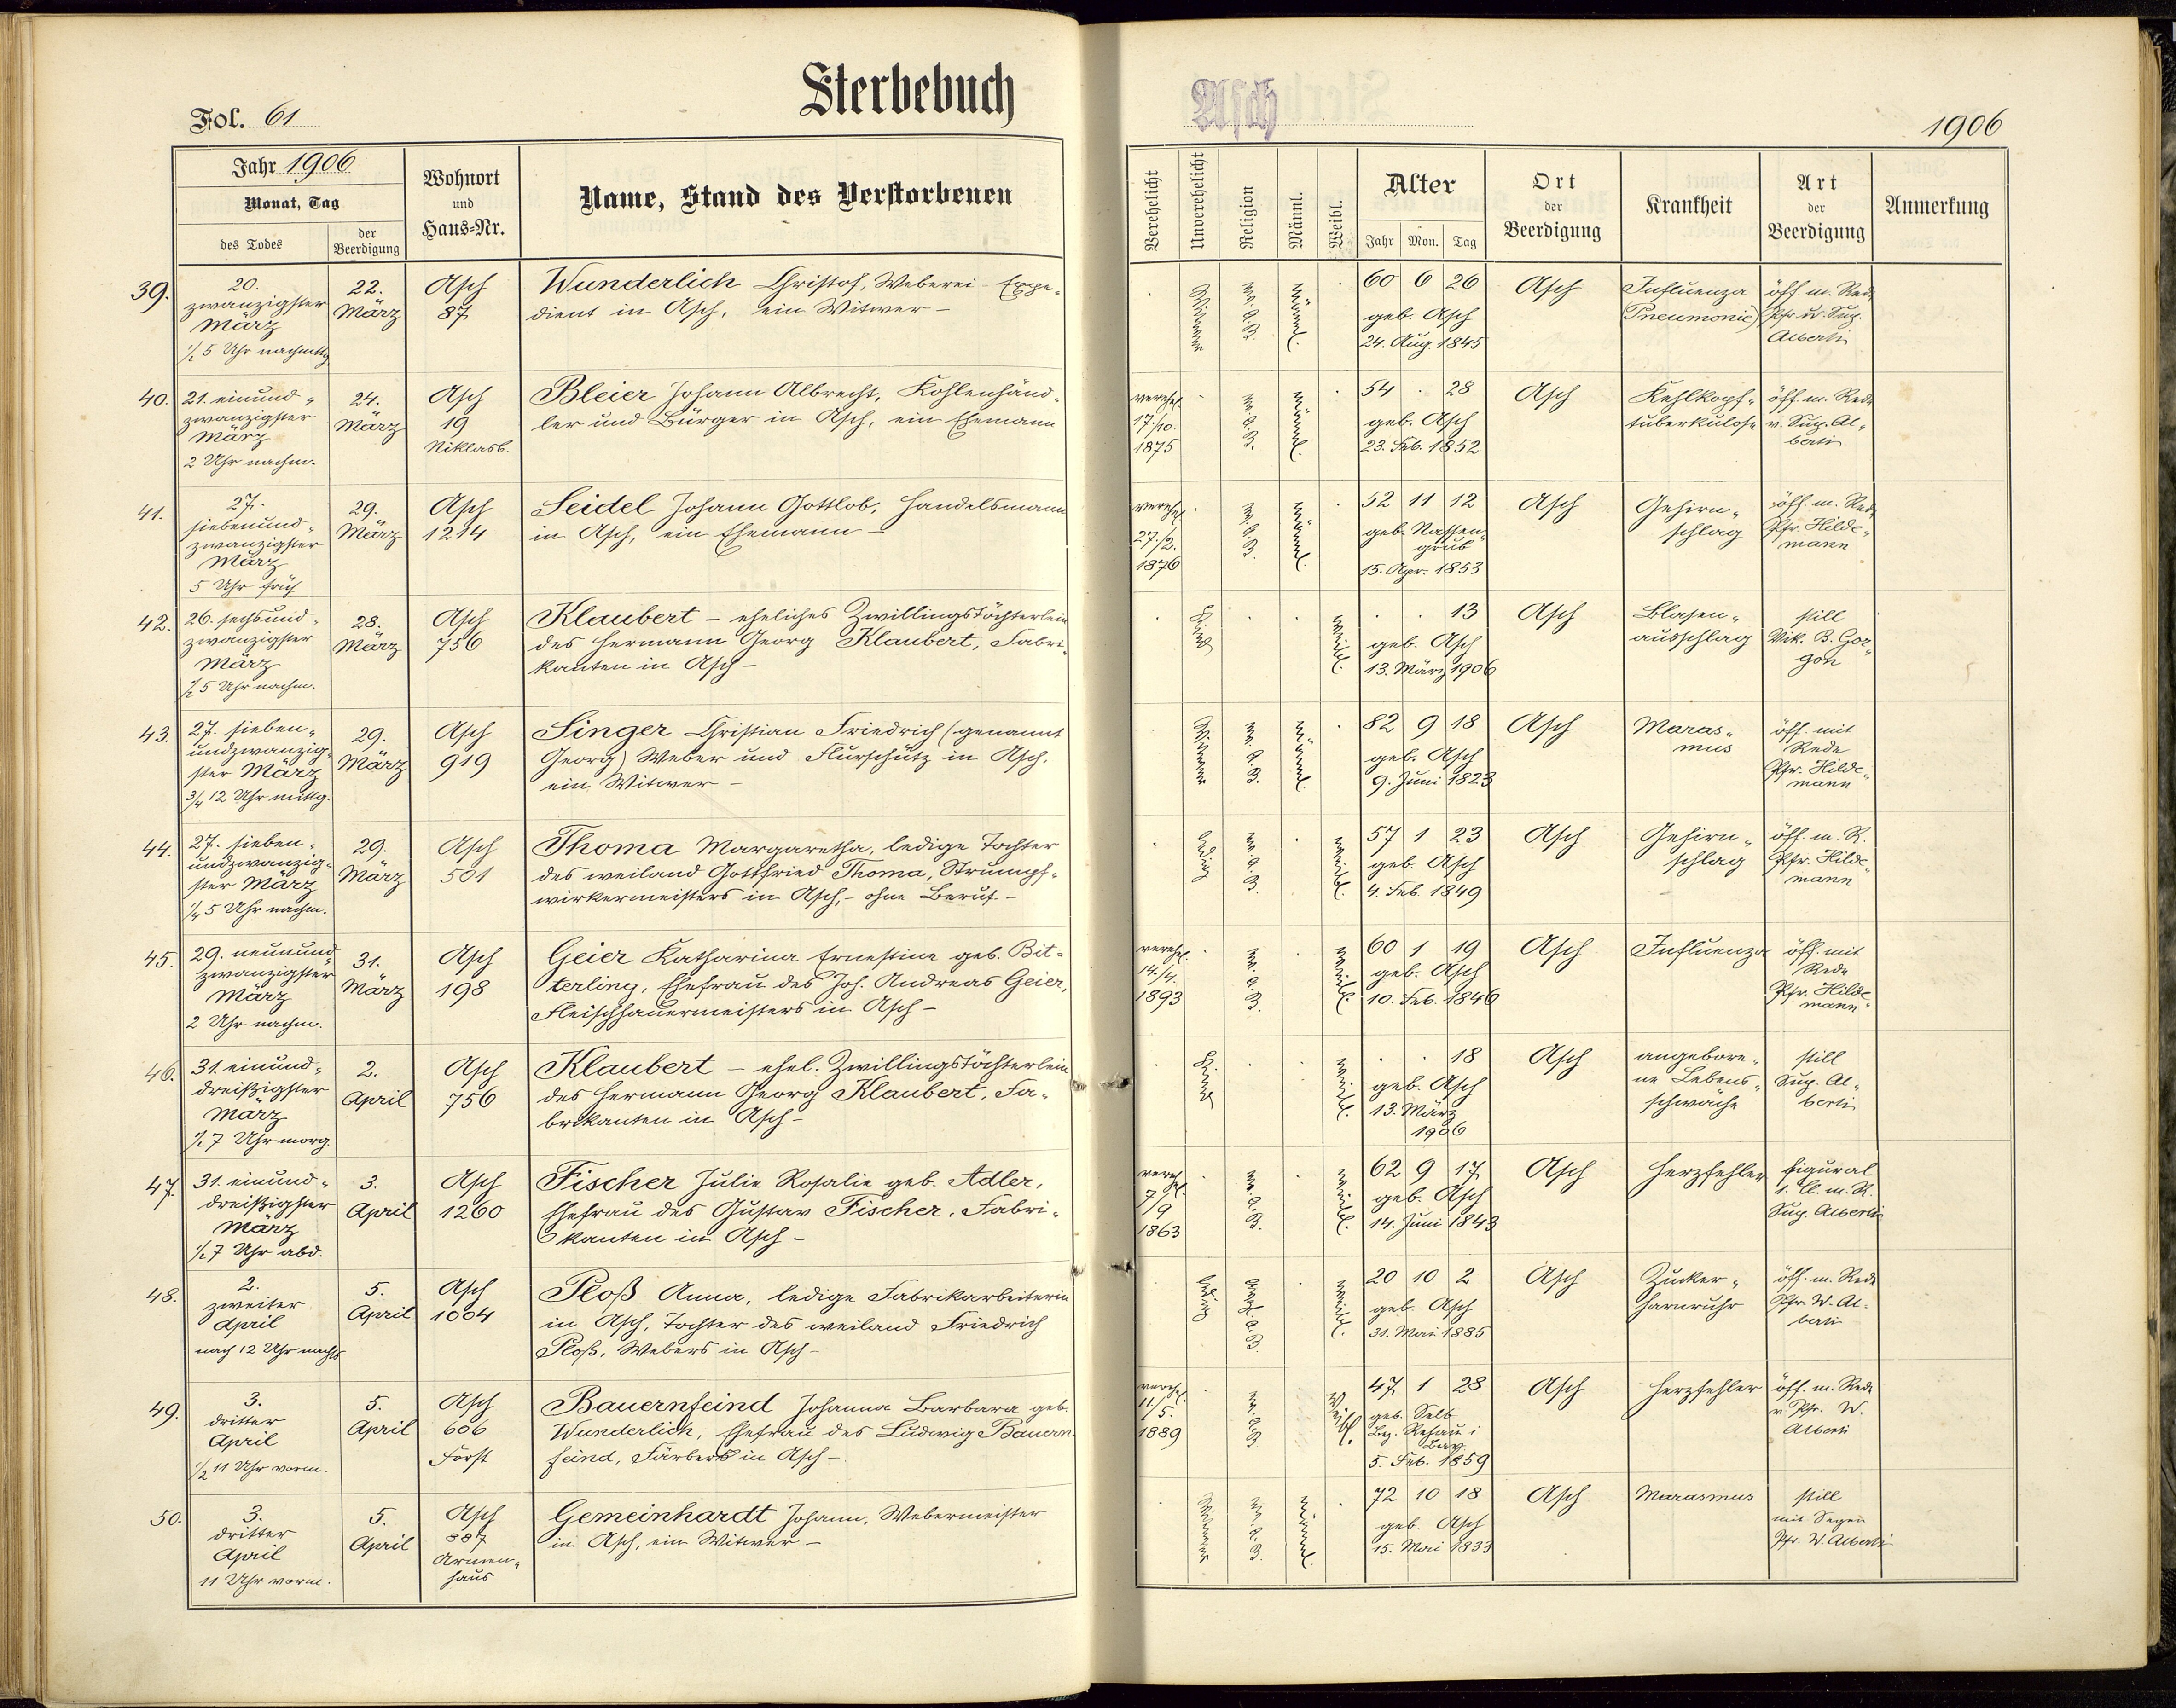 Sterbebuch
Fol. 61
Jahr 1906
Monat, Tag
des Todes
der Beerdigung
Wohnort
und
Haus-Nr.
Name, Stand des Verstorbenen
39.
20.
zwanzigster
März
½ 5 Uhr nachmittg
22.
März
Asch
87
Wunderlich Christof, Weberei-Expe-
dient in Asch, ein Witwer –
40.
21. einund-
zwanzigster
März
2 Uhr nachm.
24.
März
Asch
19
Niklasb.
Bleier Johann Albrecht, Kohlenhänd-
ler und Bürger in Asch, ein Ehemann
41.
27.
siebenund-
zwanzigster
März
5 Uhr früh
29.
März
Asch
1214
Seidel Johann Gottlob, Handelsmann
in Asch, ein Ehemann –
42.
26. sechsund-
zwanzigster
März
½ 5 Uhr nachm.
28.
März
Asch
756
Klaubert – eheliches Zwillingstöchterlein
des Hermann Georg Klaubert, Fabri-
kanten in Asch –
43.
27. sieben-
undzwanzig-
ster März
¾ 12 Uhr mittg.
29.
März
Asch
919
Singer Christian Friedrich (genannt
Georg) Weber und Flurschütz in Asch,
ein Witwer –
44.
27. sieben-
undzwanzig-
ster März
¼ 5 Uhr nachm.
29.
März
Asch
501
Thoma Margaretha, ledige Tochter
des weiland Gottfried Thoma, Strumpf-
wirkermeisters in Asch, – ohne Beruf –
45.
29. neunund-
zwanzigster
März
2 Uhr nachm.
31.
März
Asch
198
Geier Katharina Ernestine geb. Bit-
terling, Ehefrau des Joh. Andreas Geier,
Fleischhauermeisters in Asch –
46.
31. einund-
dreißigster
März
½ 7 Uhr morg.
2.
April
Asch
756
Klaubert – ehel. Zwillingstöchterlein
des Hermann Georg Klaubert, Fa-
brikanten in Asch –
47.
31. einund-
dreißigster
März
½ 7 Uhr abd.
3.
April
Asch
1260
Fischer Julie Rosalie geb. Adler,
Ehefrau des Gustav Fischer, Fabri-
kanten in Asch –
48.
2.
zweiter
April
nach 12 Uhr nachts
5.
April
Asch
1004
Ploß Anna, ledige Fabrikarbeiterin
in Asch, Tochter des weiland Friedrich
Ploß, Webers in Asch –
49.
3.
dritter
April
½ 11 Uhr vorm.
5.
April
Asch
606
Forst
Bauernfeind Johanna Barbara geb.
Wunderlich, Ehefrau des Ludwig Bauern-
feind, Färbers in Asch –
50.
3.
dritter
April
11 Uhr vorm.
5.
April
Asch
887
Armen-
haus
Gemeinhardt Johann, Webermeister
in Asch, ein Witwer –
Asch
1906
Verehelicht
Unverehelicht
Religion
Männl.
Weibl.
Alter
Jahr
Mon.
Tag
Ort
der
Beerdigung
Krankheit
Art
der
Beerdigung
Anmerkung
Witwer
ev. A. B.
männl.
60 6 26
geb. Asch
24. Aug. 1845
Asch
Influenza
(Pneumonie)
öff. m. Rede
Pfr. u. Sup.
Alberti
verehel.
17./10.
1875
ev. A. B.
männl.
54 . 28
geb. Asch
23. Feb. 1852
Asch
Kehlkopf-
tuberkulose
öff. m. Rede
v. Sup. Al-
berti
verehel.
27./2.
1876
ev. A. B.
männl.
52 11 12
geb. Nassen-
grub
15. Apr. 1853
Asch
Gehirn-
schlag
öff. m. Rede
Pfr. Hilde-
mann
Kind
weibl.
. . 13
geb. Asch
13. März 1906
Asch
Blasen-
ausschlag
still
Vik. B. Gor-
gon
Witwer
ev. A. B.
männl.
82 9 18
geb. Asch
9. Juni 1823
Asch
Maras-
mus
öff. mit
Rede
Pfr. Hilde-
mann
ledig
ev. A. B.
weibl.
57 1 23
geb. Asch
4. Feb. 1849
Asch
Gehirn-
schlag
öff. m. R.
Pfr. Hilde-
mann
verehel.
14./4.
1893
ev. A. B.
weibl.
60 1 19
geb. Asch
10. Feb. 1846
Asch
Influenza
öff. mit
Rede
Pfr. Hilde-
mann
Kind
weibl.
. . 18
geb. Asch
13. März
1906
Asch
angebore-
ne Lebens-
schwäche
still
Sup. Al-
berti
verehel.
7/9
1863
ev. A. B.
weibl.
62 9 17
geb. Asch
14. Juni 1843
Asch
Herzfehler
figural
1. Cl. m. R.
Sup. Alberti
ledig
evang. A. B.
weibl.
20 10 2
geb. Asch
31. Mai 1885
Asch
Zucker-
harnruhr
öff. m. Rede
Pfr. W. Al-
berti
verehel.
11/5.
1889
ev. A. B.
Weibl.
47 1 28
geb. Selb
Bez. Rehau i
Bay.
5. Feb. 1859
Asch
Herzfehler
öff. m. Rede
v. Pfr. W.
Alberti
Witwer
ev. A. B.
männl.
72 10 18
geb. Asch
15. Mai 1833
Asch
Marasmus
still
mit Segen
Pfr. W. Alberti